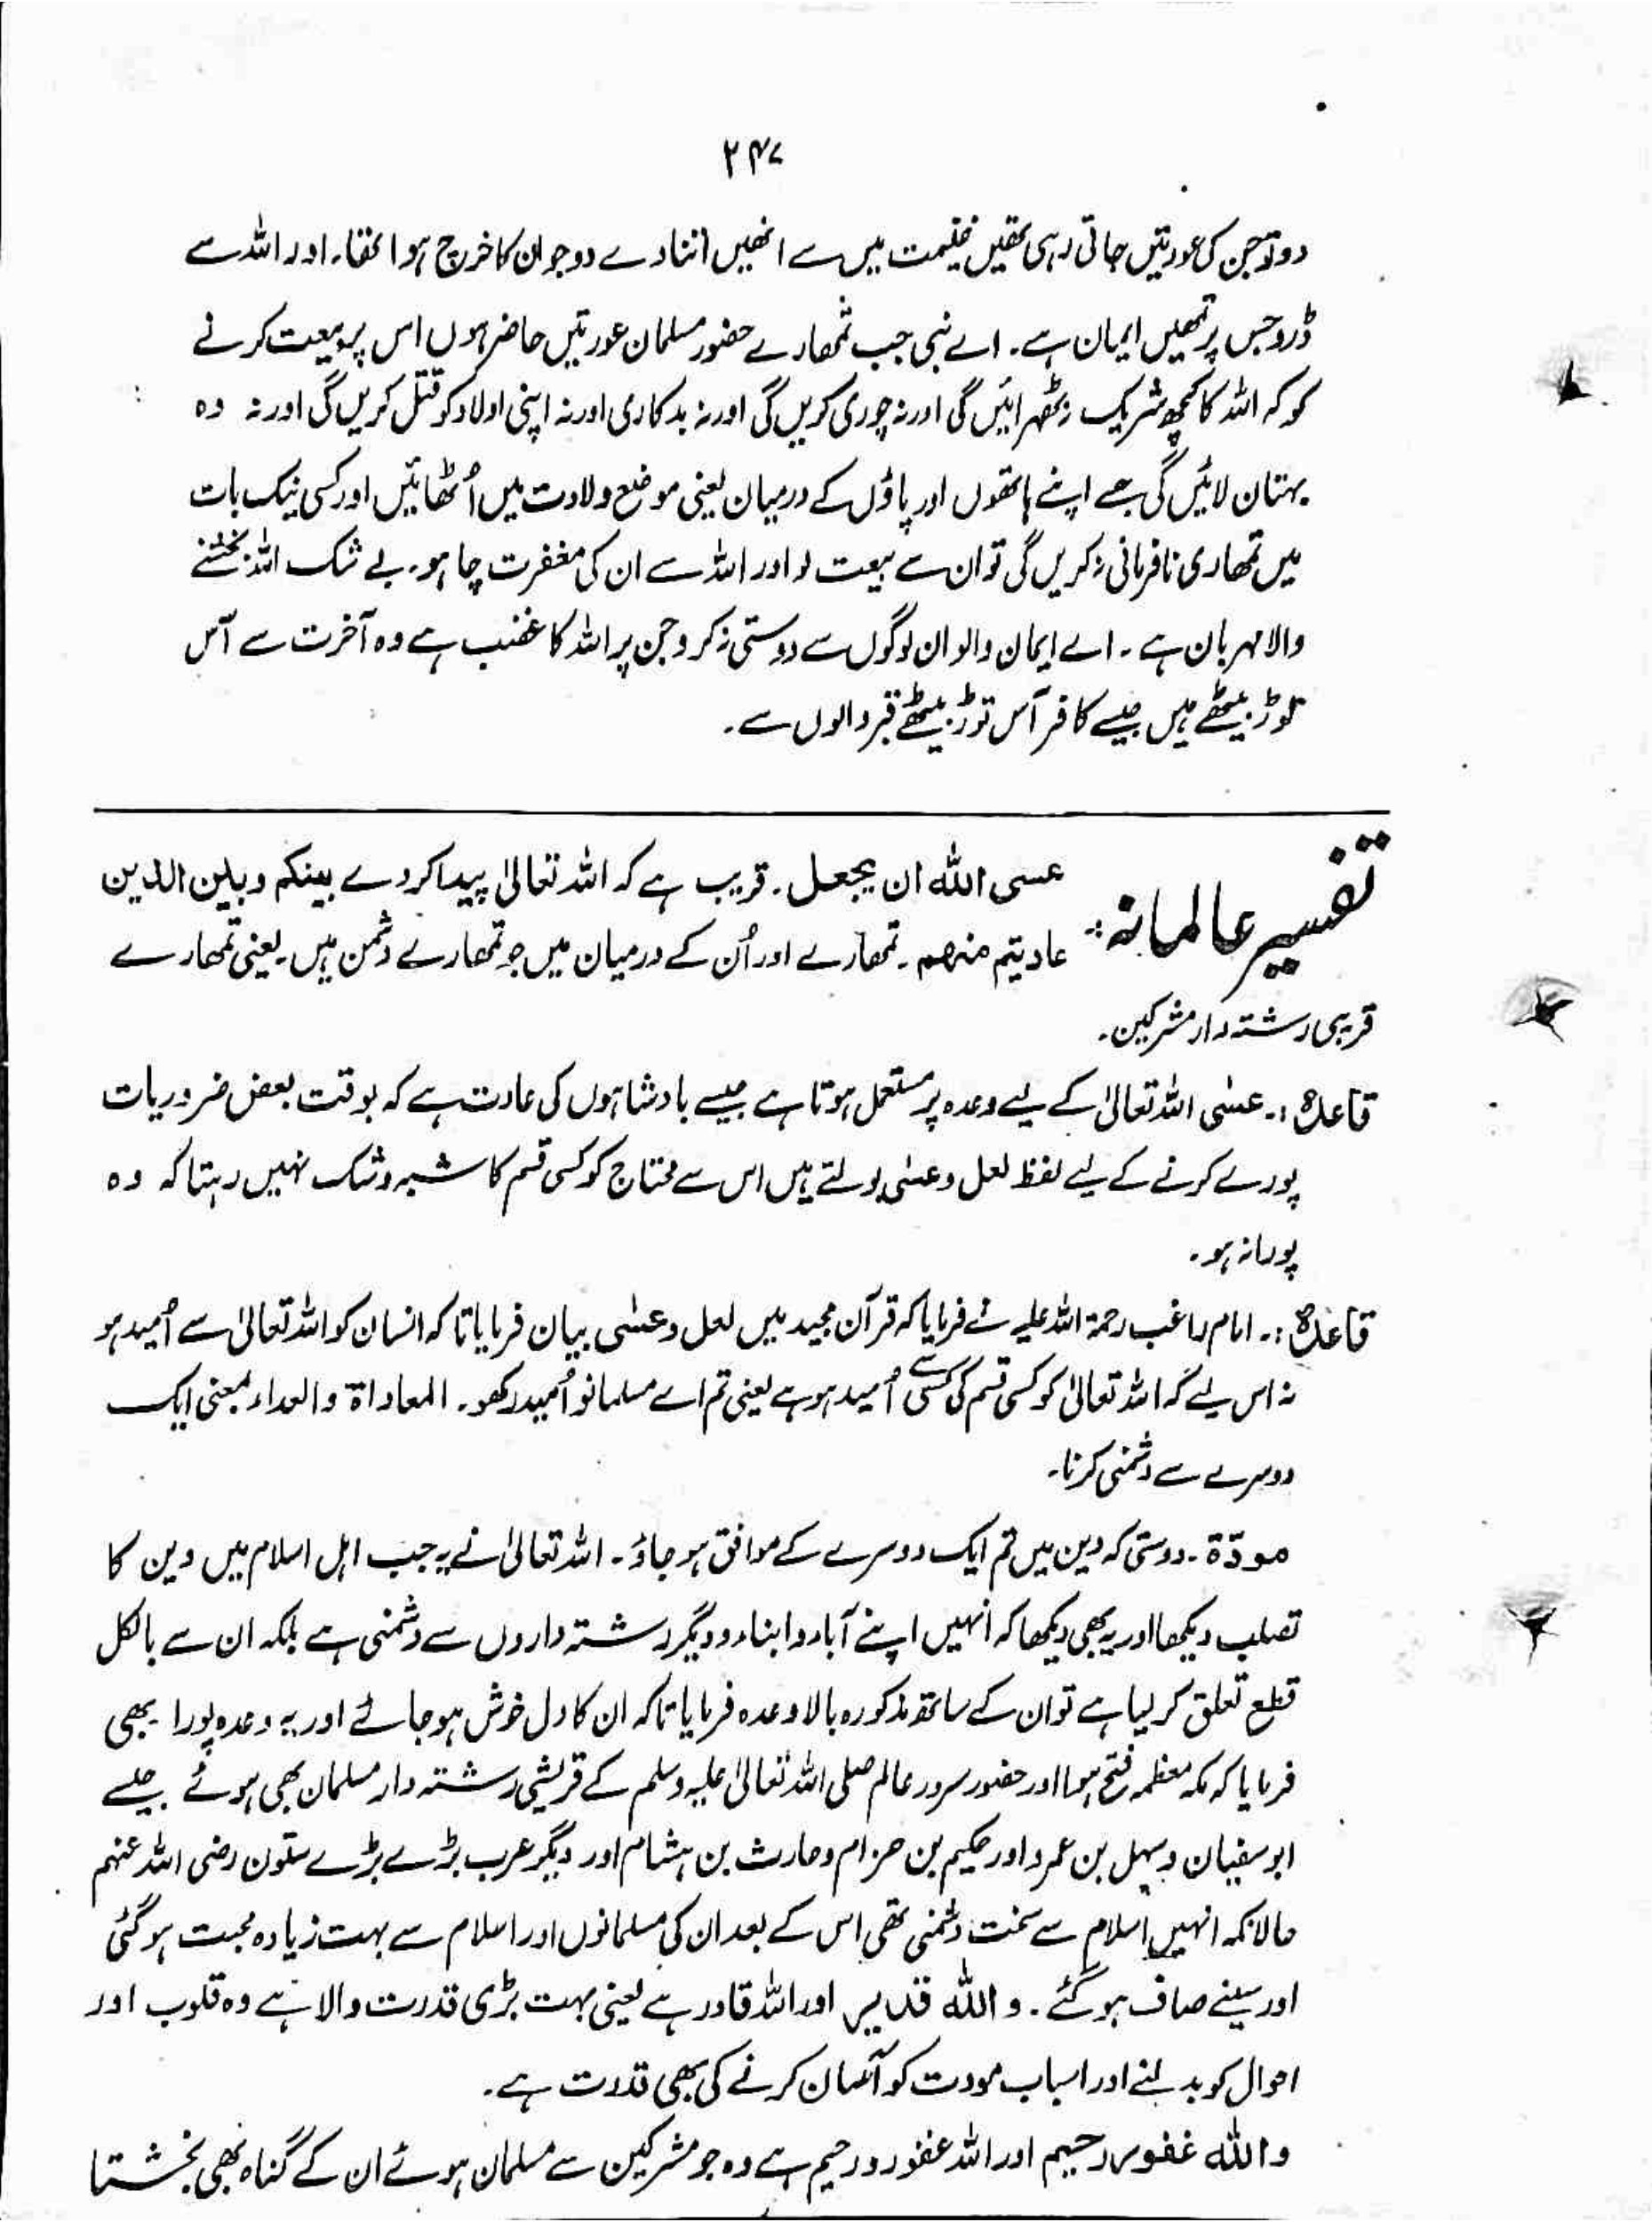 ۲۴۷
دو تو جن کی عورتیں جاتی رہی تھیں غنیمت میں سے انھیں اتنا دے دو جو ان کا خرچ ہوا تھا۔ اور اللہ سے
ڈرو جس پر تمھیں ایمان ہے۔ اے نبی جب تمھارے حضور مسلمان عورتیں حاضر ہوں اس پر بیعت کرنے
کو کہ اللہ کا کچھ شریک نہ ٹھہرائیں گی اور نہ چوری کریں گی اور نہ بدکاری اور نہ اپنی اولاد کو قتل کریں گی اور نہ وہ
بہتان لائیں گی جسے اپنے ہاتھوں اور پاؤں کے درمیان یعنی موضع ولادت میں اُٹھائیں اور کسی نیک بات
میں تمھاری نافرمانی نہ کریں گی تو ان سے بیعت لو اور اللہ سے ان کی مغفرت چاہو۔ بے شک اللہ بخشنے
والا مہربان ہے۔ اے ایمان والو ان لوگوں سے دوستی نہ کرو جن پر اللہ کا غضب ہے وہ آخرت سے آس
توڑ بیٹھے ہیں جیسے کافر آس توڑ بیٹھے قبر والوں سے۔
تفسیر عالمانہ :
عسی اللہ ان یجعل۔ قریب ہے کہ اللہ تعالیٰ پیدا کر دے بینکم و بین الذین
عادیتم منھم۔ تمھارے اور اُن کے درمیان میں جو تمھارے دشمن ہیں۔ یعنی تمھارے
قریبی رشتہ دار مشرکین۔
قاعدہ :۔ عسٰی اللہ تعالیٰ کے لیے وعدہ پر مستعمل ہوتا ہے جیسے بادشاہوں کی عادت ہے کہ بوقت بعض ضروریات
پورے کرنے کے لیے لفظ لعل و عسٰی بولتے ہیں اس سے محتاج کو کسی قسم کا شبہ و شک نہیں رہتا کہ وہ
پورا نہ ہو۔
قاعدہ :۔ امام راغب رحمۃ اللہ علیہ نے فرمایا کہ قرآن مجید میں لعل و عسٰی بیان فرمایا تا کہ انسان کو اللہ تعالیٰ سے اُمید ہو
نہ اس لیے کہ اللہ تعالیٰ کو کسی قسم کی کسی سے اُمید ہو ہے یعنی تم اے مسلمانو اُمید رکھو۔ المعاداۃ والعداء بمعنی ایک
دوسرے سے دشمنی کرنا۔
مودّۃ۔ دوستی کہ دین میں تم ایک دوسرے کے موافق ہو جاؤ۔ اللہ تعالیٰ نے یہ جب اہل اسلام میں دین کا
تصلب دیکھا اور یہ بھی دیکھا کہ انہیں اپنے آباء و ابناء و دیگر رشتہ داروں سے دشمنی ہے بلکہ ان سے بالکل
قطع تعلق کر لیا ہے تو ان کے ساتھ مذکورہ بالا وعدہ فرمایا تاکہ ان کا دل خوش ہو جائے اور یہ وعدہ پورا بھی
فرمایا کہ مکہ معظمہ فتح ہوا اور حضور سرور عالم صلی اللہ تعالیٰ علیہ وسلم کے قریشی رشتہ دار مسلمان بھی ہوئے جیسے
ابو سفیان و سہل بن عمرو اور حکیم بن حزام و حارث بن ہشام اور دیگر عرب بڑے بڑے ستون رضی اللہ عنہم
حالانکہ انہیں اسلام سے سخت دشمنی تھی اس کے بعد ان کی مسلمانوں اور اسلام سے بہت زیادہ محبت ہو گئی
اور سینے صاف ہو گئے۔ و اللہ قدیر اور اللہ قادر ہے یعنی بہت بڑی قدرت والا ہے وہ قلوب اور
احوال کو بدلنے اور اسباب مودت کو آسان کرنے کی بھی قدرت ہے۔
واللہ غفور رحیم اور اللہ غفور و رحیم ہے وہ جو مشرکین سے مسلمان ہوئے ان کے گناہ بھی بخشتا